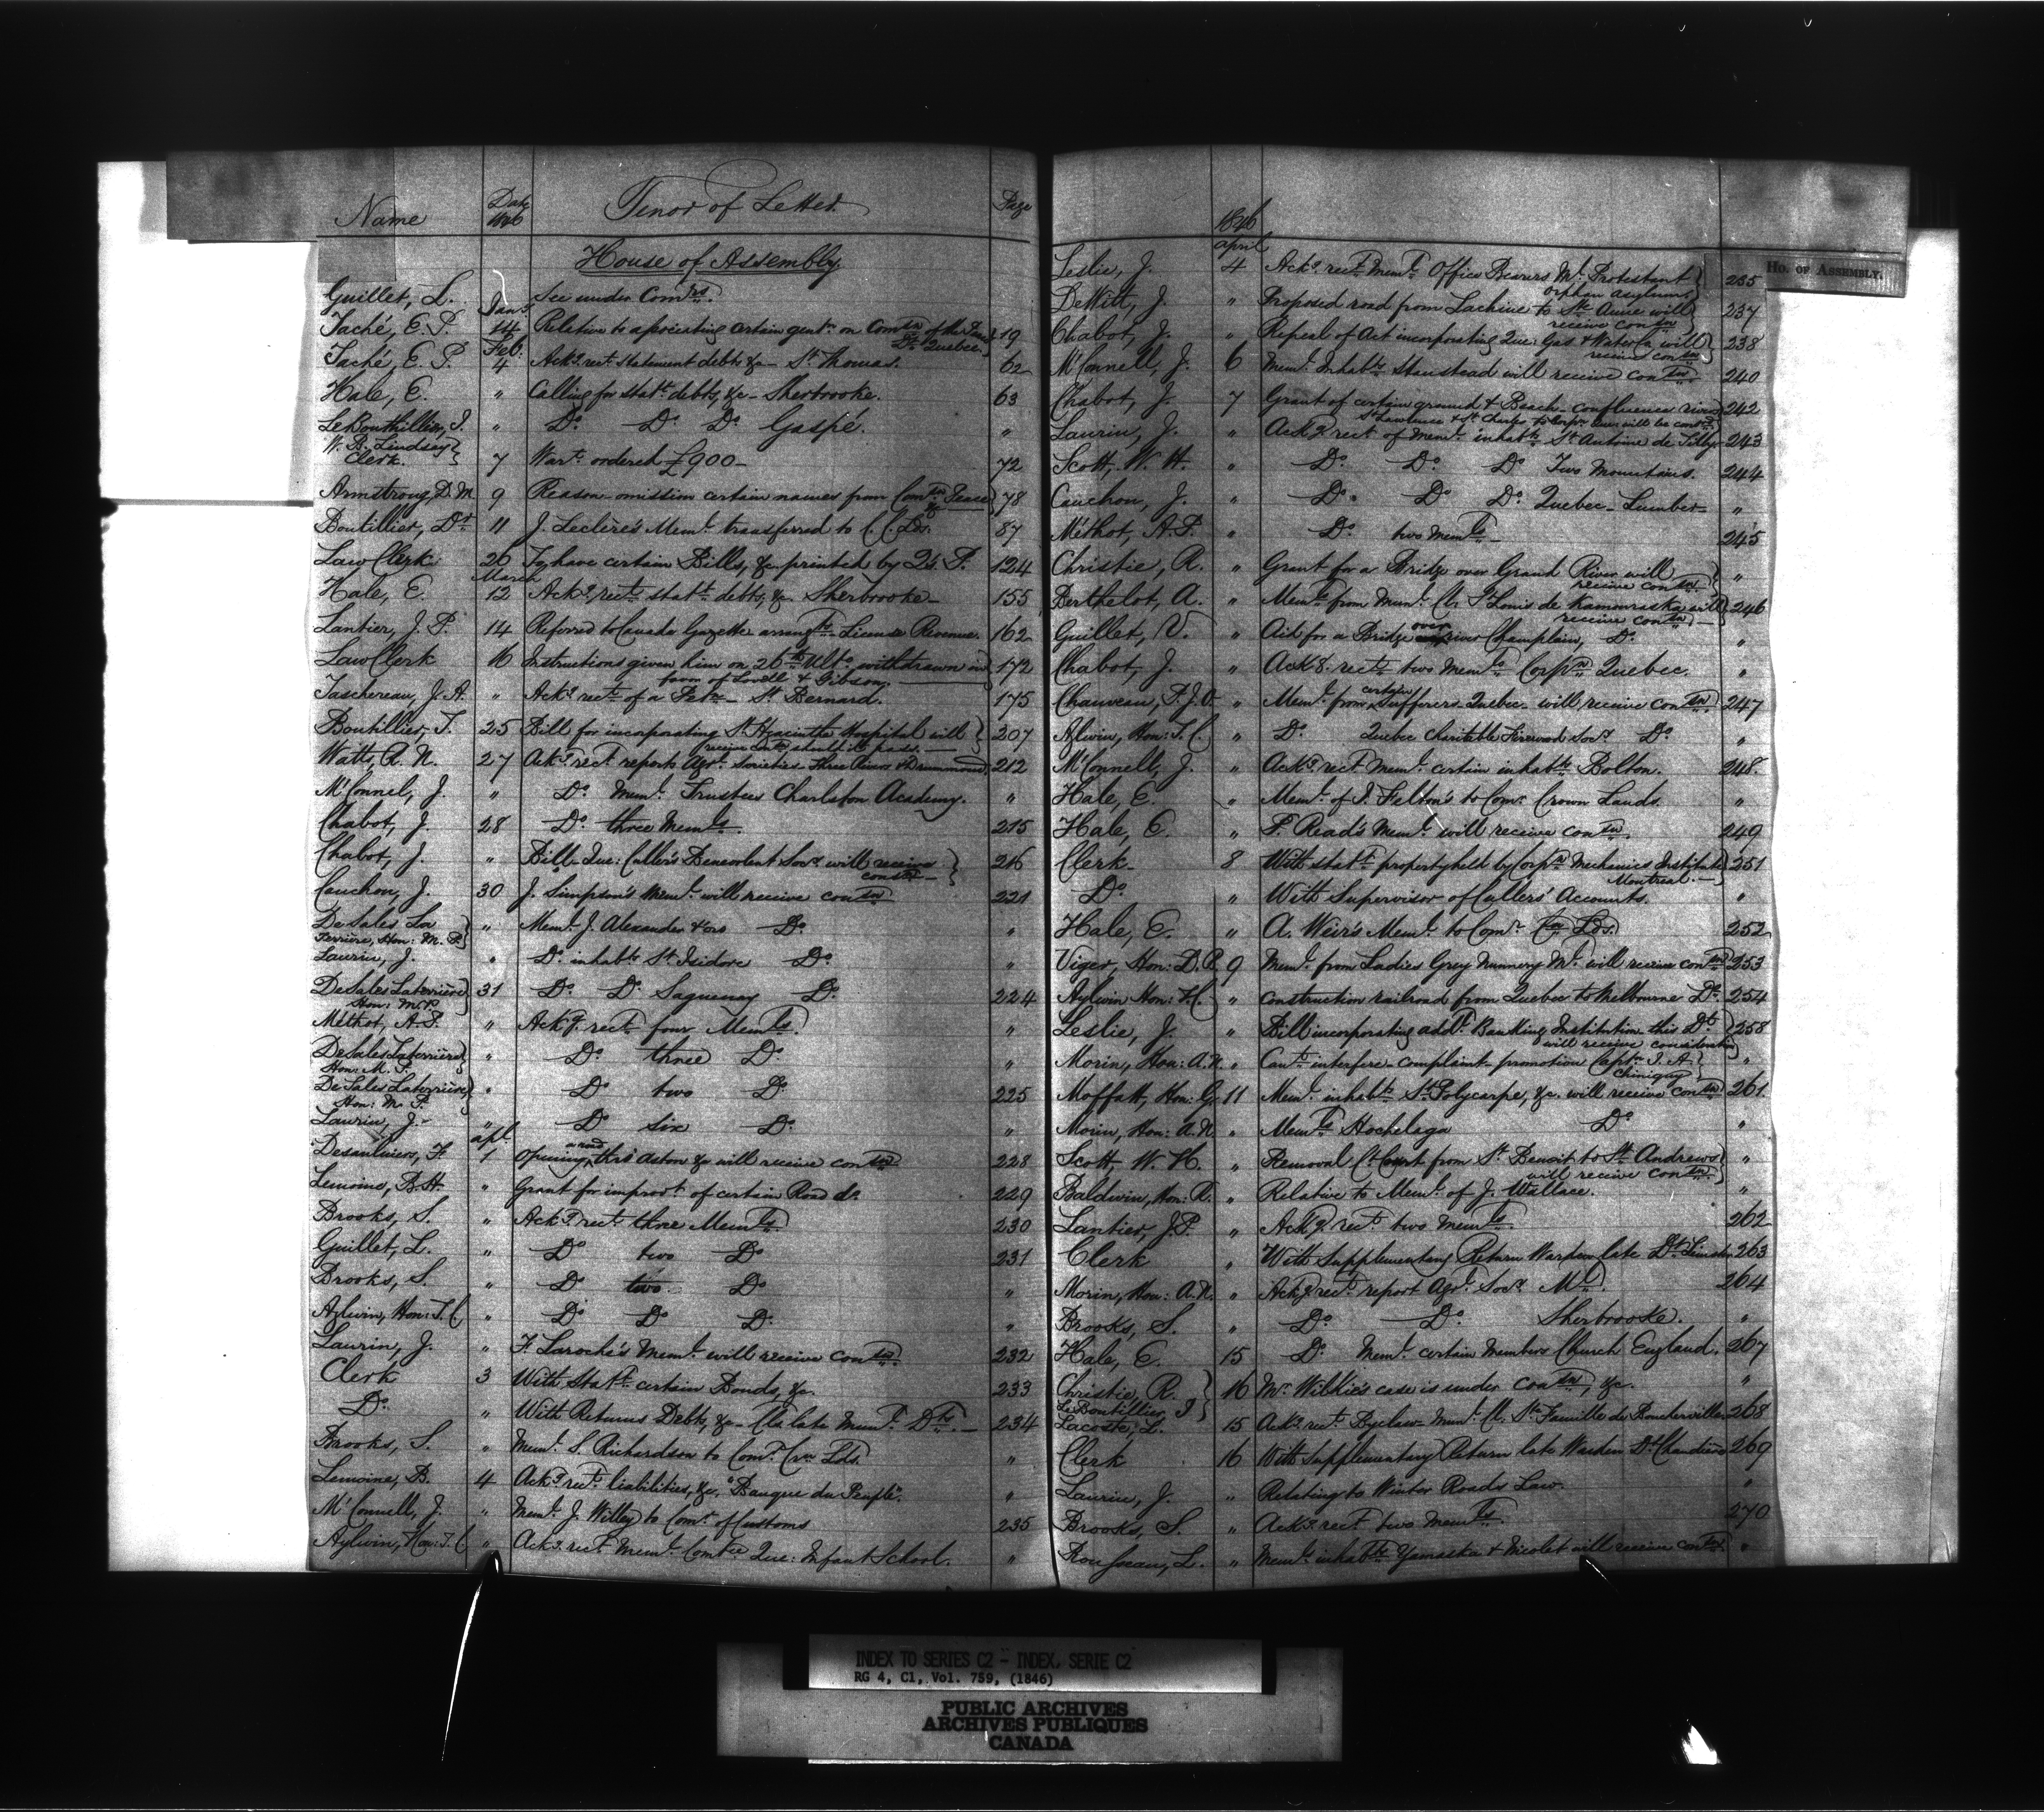 Name Date 1846 Tenor of Letter Page
House of Assembly
Guillet, L. See under Comrs.
Jany
Taché, E. P. 14 Relative to associating certain gentn on Comsn of the Peace 19
Dt Quebec
Feb.
Taché, E. P. 4 Ackg. rect. statement debts &c - St Thomas. 62
Hale, E. " Calling for statt. debts, &c - Sherbrooke. 63
LeBouthillier, J. " Do. Do. Do. Gaspé. "
W. B. Lindsay
Clerk. 7 Wart. ordered £900- 72
Armstrong, D. M. 9 Reason omission certain names from Comsn Peace 78
&c
Boutillier, Dr. 11 J. Leclère's Meml. transferred to C. C. Lds. 87
Law Clerk 26 To have certain Bills, &c printed by Q's. P. 124
March
Hale, E. 12 Ackg. rect. statt. debts, &c. Sherbrooke- 155
Lantier, J. P. 14 Referred to Canada Gazette arrangts. License Revenue. 162
Law Clerk 16 Instructions given him on 26th Ulto. withdrawn in 172
favor of Lovell & Gibson.
Taschereau, J. A. " Ackg. rect. of a Petn - St. Bernard. 175
Boutillier, T. 25 Bill for incorporating St. Hyacinthe Hospital will 207
receive consn should it pass.
Watts, R. N. 27 Ackg. rect. reports Agrl. Societies Three Rivers & Drummond. 212
McConnel, J. " Do. Meml. Trustees Charlston Academy. "
Chabot, J. 28 Do. three Memls. 215
Chabot, J. " Bill - Que: Culler's Benevolent Socy. will receive 216
consn -
Cauchon, J. 30 J. Simpson's Meml. will receive consn 221
De Sales La
Terrière, Hon: M. P. " Meml. J. Alexander & ors Do. "
Laurin, J. " Do. inhabts. St. Isidore Do. "
De Sales Laterrière 31 Do. Do. Saguenay Do. 224
Hon: M. P.
Méthot, A. P. " Ackg. rect. four Memls. "
De Sales Laterrière " Do. three Do. "
Hon: M. P.
De Sales Laterrière " Do. two Do. 225
Hon: M. P.
Laurin, J. - " Do. six Do. "
apl.
Desaulniers, F. 1 Opening road thro' Aston &c will receive consn 228
Lemoine, B. H. " Grant for improvt. of certain Road do. 229
Brooks, S. " Ackg. rect. three Memls. 230
Guillet, L. " Do. two Do. 231
Brooks, S. " Do. two Do. "
Aylwin, Hon: T. C. " Do. Do. Do. "
Laurin, J. " F. Laroche's Meml. will receive consn. 232
Clerk 3 With statt. certain Bonds, &c. 233
Do. " With Returns Debts, &c - Cls late Munl. Dts. - 234
Brooks, S. " Meml. S. Richardson to Comr. Crn Lds. "
Lemoine, B. 4 Ackg. rect. liabilities, &c. "Banque du Peuple". "
McConnell, J. " Meml. J. Willey to Comr. of Customs 235
Aylwin, Hon: T. C. " Ackg. rect. Meml. Comtee Que: Infant School. "
1846
april
Ho. of Assembly.
Leslie, J. 4 Ackg. rect. Meml. Office Bearers Ml. Protestant 235
Orphan Asylum.
DeWitt, J. " Proposed road from Lachine to St. Anne will 237
receive consn.
Chabot, J. " Repeal of Act incorporating Que: Gas & Water Co. will 238
receive consn
McConnell, J. 6 Meml. Inhabts. Stanstead will receive consn. 240
Chabot, J. 7 Grant of certain ground & Beach - confluence rivers 242
St Lawrence & St. Charles to Corpn. Que: will be consd.
Laurin, J. " Ackg. rect. of Meml. inhabts. St Antoine de Tilly 243
Scott, W. H. " Do. Do. Do. Two Mountains. 244
Cauchon, J. " Do. Do. Do. Quebec - Lumber "
Méthot, A. P. " Do. two Memls. - 245
Christie, R. " Grant for a Bridge over Grand River will "
receive consn.
Berthelot, A. " Meml. from Munl. Cl. St. Louis de Kamouraska will 246
receive consn -
Guillet, V. " Aid for a Bridge over river Champlain, Do. "
Chabot, J. " Ackg. rect. two Memls. Corpn. Quebec. "
Chauveau, P. J. O. " Meml. from certain Sufferers Quebec will receive consn. 247
Aylwin, Hon: T. C. " Do. Quebec Charitable Firewood Socy. Do. "
McConnell, J. " Ackg. rect. Meml. certain inhabts. Bolton. 248.
Hale, E. " Meml. of J. Felton's to Comr. Crown Lands. "
Hale, E. " F. Read's Meml. will receive consn. 249
Clerk 8 With statt. property held by Corpn. Mechanics Institute 251
Montreal. -
Do. " With Supervisor of Cullers' Accounts. "
Hale, E. " A. Weir's Meml. to Comr. Crn Lds. 252
Viger, Hon: D. B. 9 Meml. from Ladies Grey Nunnery Ml. will receive consn 253
Aylwin Hon: T. C. " Construction railroad from Quebec to Melbourne Do. 254
Leslie, J. " Bill incorporating addl. Banking Institution this Dt. 258
will receive consideration
Morin, Hon: A. N. " Cant. interfere - complaint - promotion Captn. J. A. "
Chiniquy
Moffatt, Hon: G. 11 Meml. inhabts. St. Polycarpe, &c. will receive consn 261
Morin, Hon: A. N. " Memls. Hochelaga Do. "
Scott, W. H. " Removal Ct. Court from St. Benoit to St. Andrews "
will receive consn.
Baldwin, Hon: R. " Relative to Meml. of J. Wallace. "
Lantier, J. P. " Ackg. rect. two Memls. 262
Clerk " With Supplementary Return Warden late Dt. 263
Morin, Hon: A. N. " Ackg. rect. report Agrl. Socy. Ml. 264
Brooks, S. " Do. Do. Sherbrooke. "
Hale, E. 15 Do. Meml. certain Members Church England. 267
Christie, R. 16 Mr. Wilkie's case is under consn, &c. "
Le Boutillier J
Lacoste, L. 15 Ackg. rect. Byelaw - Munl. Cl. Ste Famille de Boucherville 268
Clerk 16 With Supplementary Return late Warden Dt. Chaudière 269
Laurin, J. " Relating to Winter Roads Law. "
Brooks, S. " Ackg. rect. two Memls. 270
Rousseau, L. " Meml. inhabts. Yamaska & Nicolet will receive consn. "
INDEX TO SERIES C2 - INDEX, SERIE C2
RG 4, C1, Vol. 759, (1846)
PUBLIC ARCHIVES
ARCHIVES PUBLIQUES
CANADA